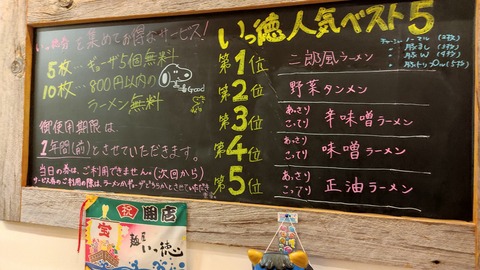 いっ徳人気ベスト5
を集めてお得なサービス!
5枚…ギョーザ5個無料
10枚…800円以内の
ラーメン無料
Good
御使用期限は、
1年間(前)とさせていただきます。
当日の券は、ご利用できません。(次回から)
サービス券のご利用の際は、ラーメンかギョーザどちらか
とさせていただき
第1位 二郎風ラーメン
第2位 野菜タンメン
第3位 あっさり こってり 辛味噌ラーメン
第4位 あっさり こってり 味噌ラーメン
第5位 あっさり こってり 正油ラーメン
祝 開店
宝
麺屋
いっ徳